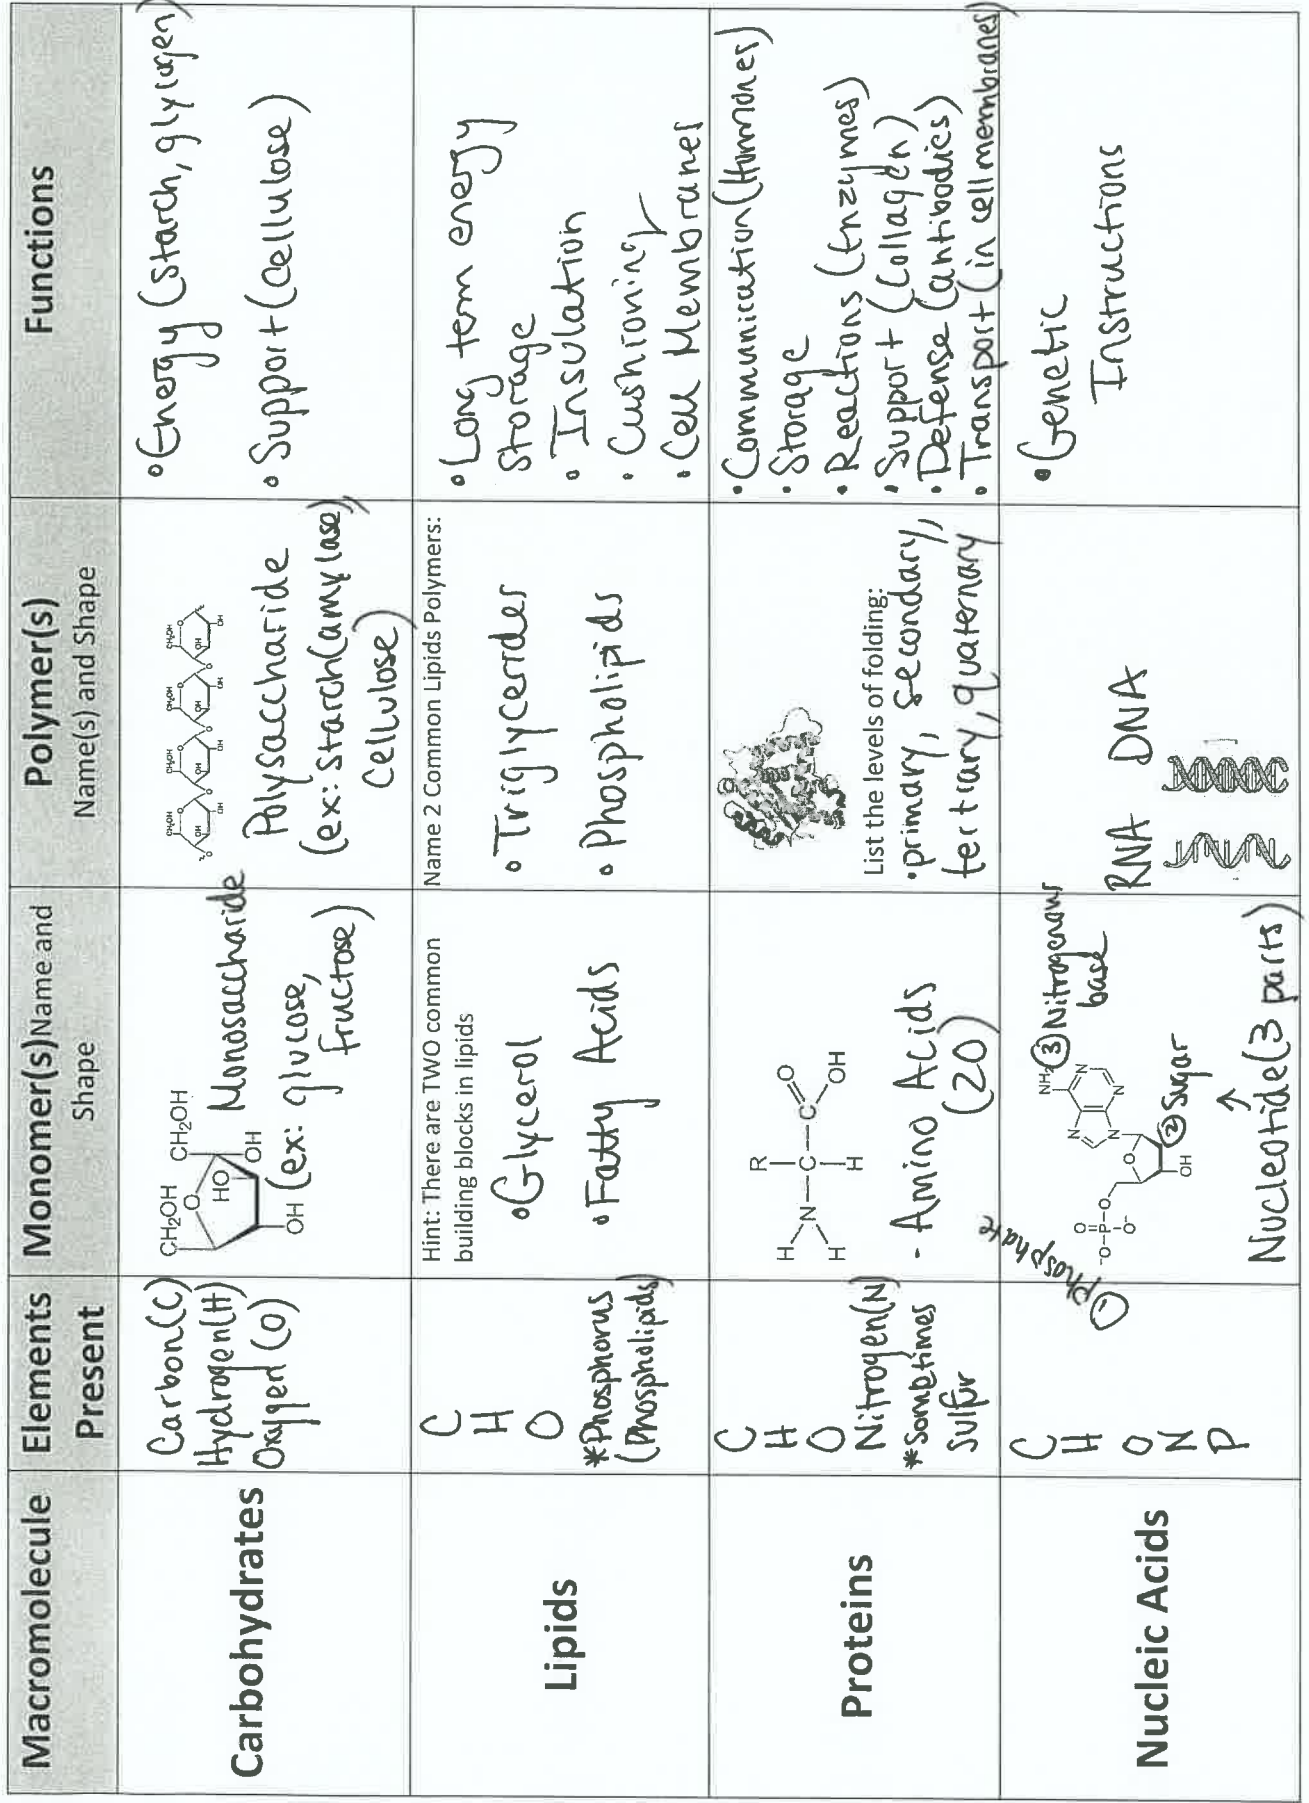 Macromolecule
Elements
Present
Monomer(s) Name and
Shape
Polymer(s)
Name(s) and Shape
Functions
Carbohydrates
Carbon (C)
Hydrogen (H)
Oxygen (O)
CH2OH
O
CH2OH
HO
OH
OH
Monosaccharide
(ex: glucose,
fructose)
CH2OH
CH2OH
CH2OH
CH2OH
OH
OH
OH
OH
OH
OH
OH
OH
Polysaccharide
(ex: Starch(amylase)
Cellulose)
•Energy (Starch, glycogen)
• Support (Cellulose)
Lipids
C
H
O
*Phosphorus
(Phospholipids)
Hint: There are TWO common
building blocks in lipids
•Glycerol
•Fatty Acids
Name 2 Common Lipids Polymers:
• Triglycerides
• Phospholipids
• Long term energy
Storage
• Insulation
• Cushioning
• Cell Membranes
Proteins
C
H
O
Nitrogen (N)
*Sometimes
Sulfur
H
H
N
R
C
H
C
O
OH
- Amino Acids
(20)
List the levels of folding:
•primary, secondary,
tertiary, quaternary
• Communication (Hormones)
• Storage
• Reactions (Enzymes)
• Support (Collagen)
• Defense (antibodies)
• Transport (in cell membranes)
Nucleic Acids
C
H
O
N
P
① Phosphate
O
-O-P-O
O-
O
OH
② Sugar
N
N
N
N
NH2
③ Nitrogenous
base
↑
Nucleotide (3 parts)
RNA DNA
• Genetic
Instructions